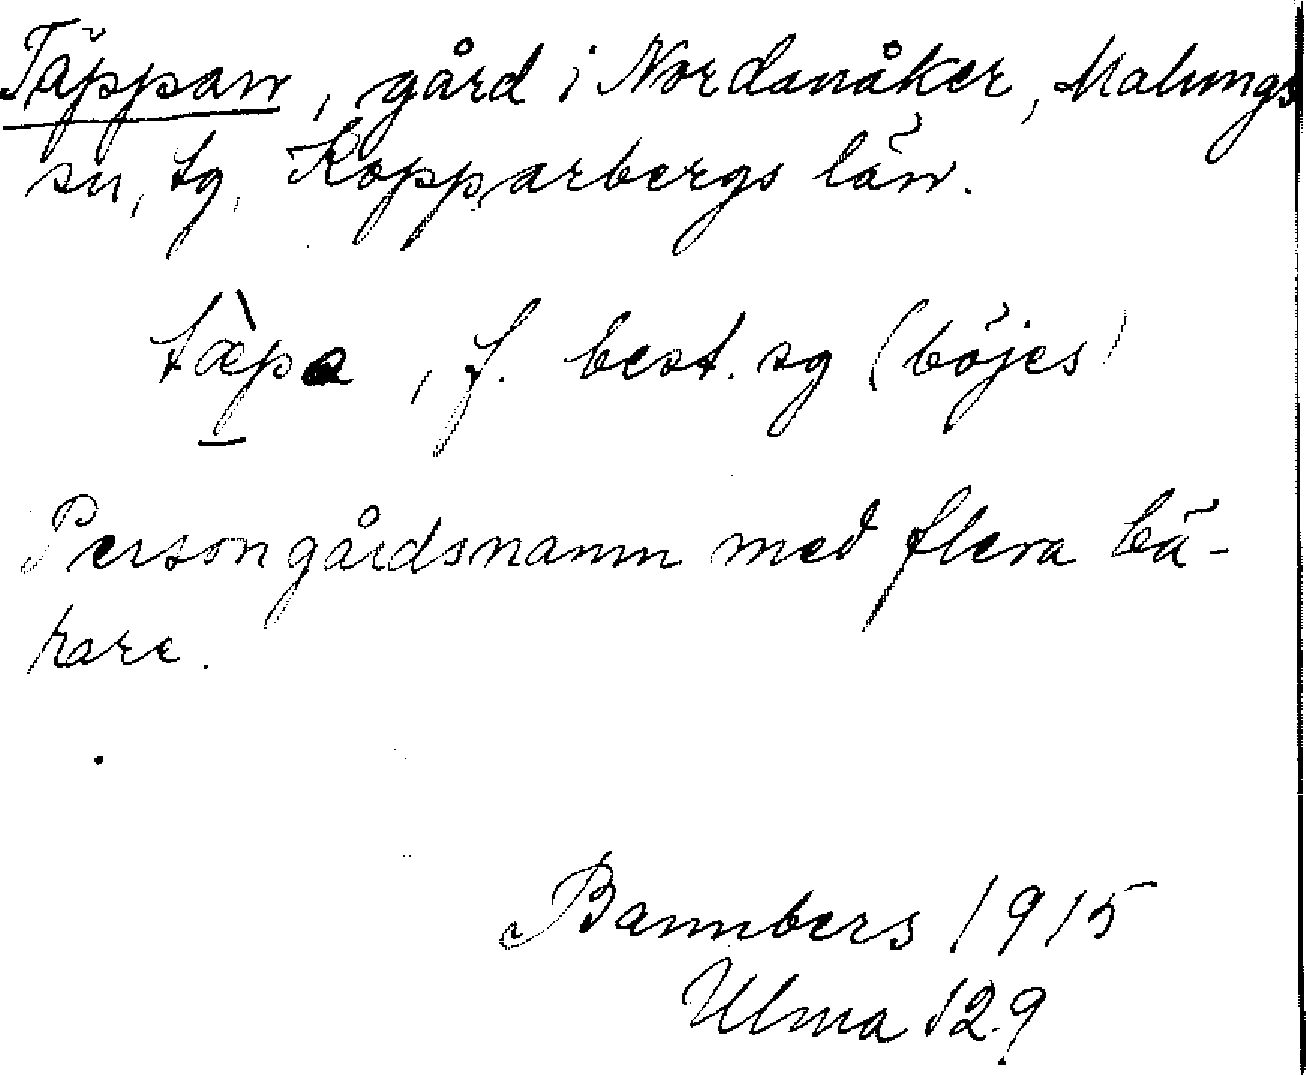 Täppan, gård i Nordanåker, Malungs
sn, tg, Kopparbergs län.
tæ̀pa, f. best. sg (böjes)
Persongårdsnamn med flera bä-
rare.
Bannbers 1915
Ulma 129